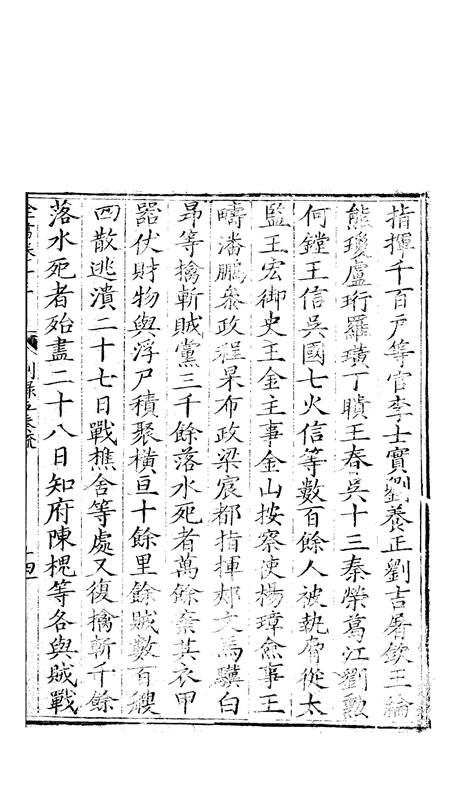 指揮千百戶等官李士實劉養正劉吉屠欽王綸
熊瓊盧珩羅璜丁瞶王春吳十三秦榮葛江劉勲
何鏜王信吳國七火信等數百餘人被執脅從太
監王宏御史王金主事金山按察使楊璋僉事王
疇潘鵬叅政程杲布政梁宸都指揮郟文馬驥白
昂等擒斬賊黨三千餘落水死者萬餘棄其衣甲
器仗財物與浮尸積聚橫亘十餘里餘賊數百艘
四散逃潰二十七日戰樵舍等處又復擒斬千餘
落水死者殆盡二十八日知府陳槐等各與賊戰
全書卷十二
別錄五奏疏
十四